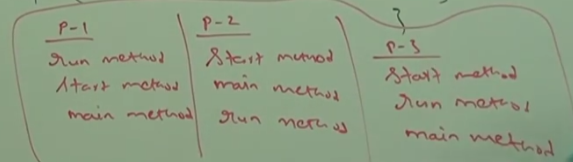 P-1
Run method
Start method
main method
P-2
Start method
main method
Run method
?
P-3
Start method
Run method
main method